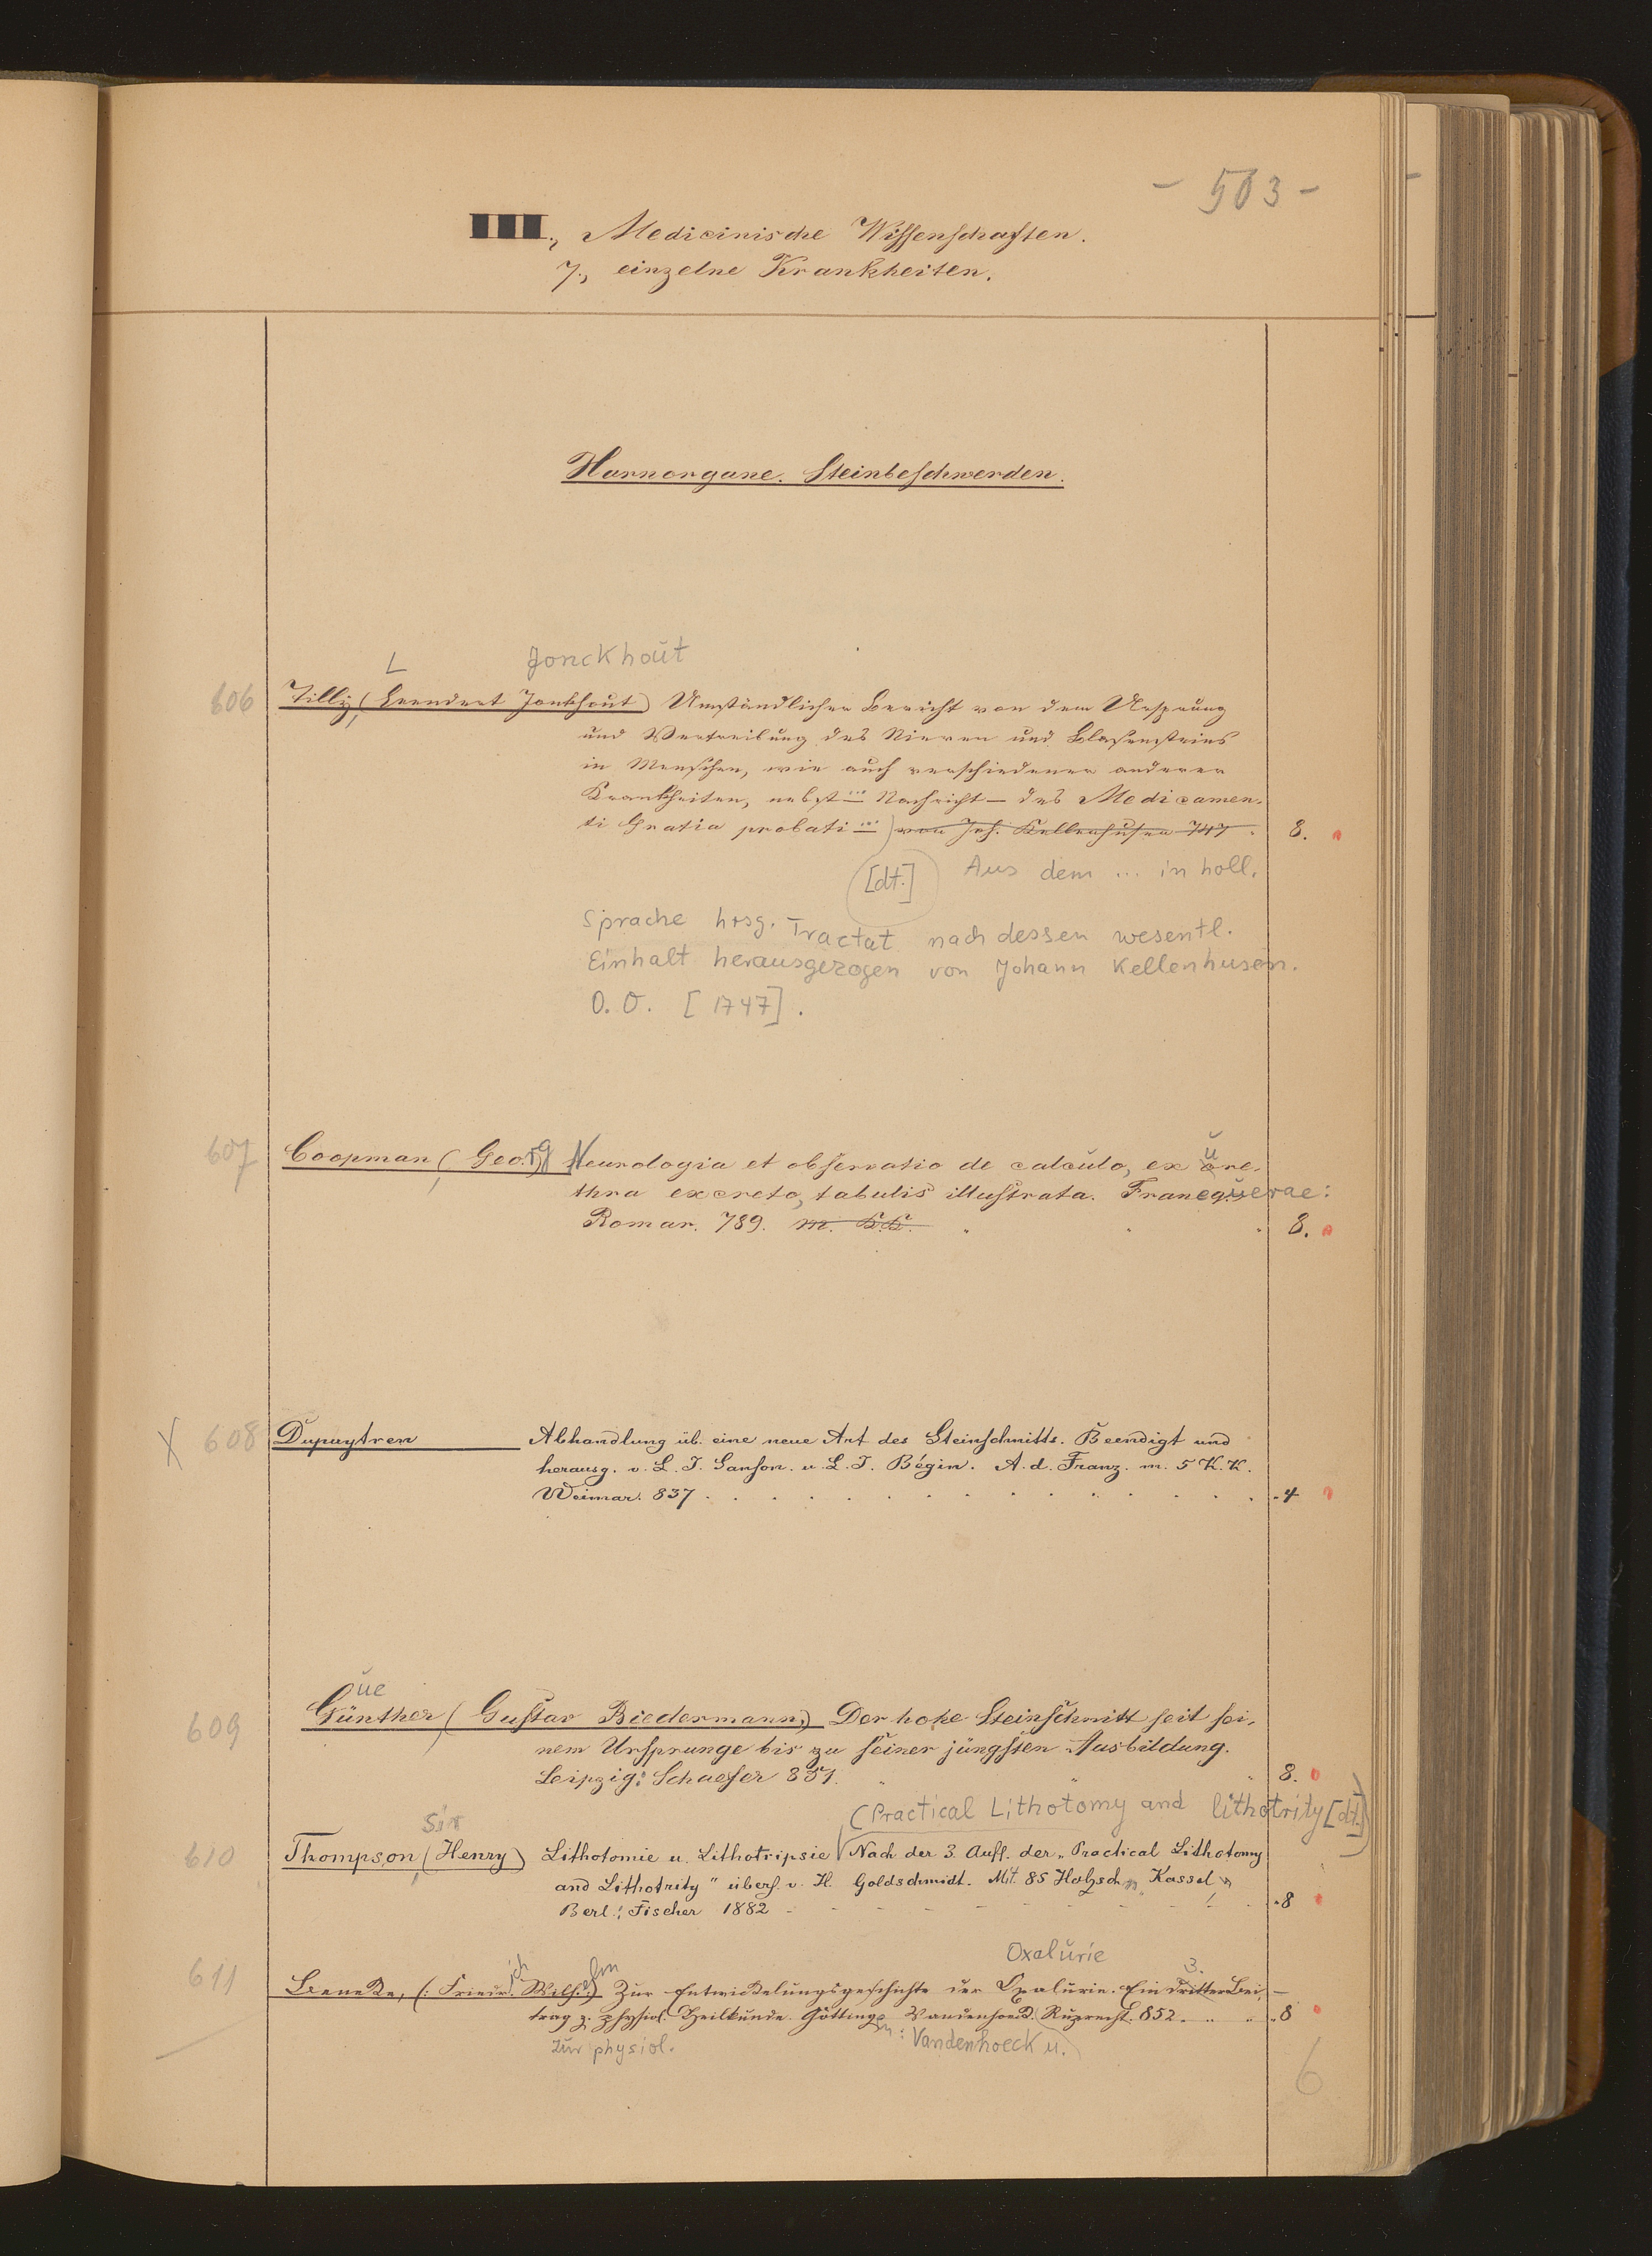 - 503 -
III., Medicinische Wissenschaften.
7., einzelne Krankheiten.
Harnorgane. Steinbeschwerden.
L Jonckhout
606 Tilly, (Leendert Jonkhout) Umständlicher Bericht von dem Ursprung
und Vertreibung des Nieren und Blasensteins
in Menschen, wie auch verschiedener anderer
Krankheiten, nebst ... Nachricht – des Medicamen-
ti Gratia probati ...) von Joh. Kellenhusen 747. 8.
[dt.] Aus dem ... in holl.
Sprache hrsg. Tractat nach dessen wesentl.
Einhalt herausgezogen von Johann Kellenhusen.
O. O. [1747].
607 Coopman, (Georg) Neurologia et observatio de calculo, ex ure-
thra excreto, tabulis illustrata. Franequerae:
Romar. 789. m. K.K. 8.
X 608 Dupuytren Abhandlung üb. eine neue Art des Steinschnitts. Beendigt und
herausg. v. L. J. Sanson. u. L. J. Bégin. A. d. Franz. m. 5 K. K.
Weimar. 837 . 4
ue
609 Günther, (Gustav Biedermann,) Der hohe Steinschnitt seit sei-
nem Ursprunge bis zu seiner jüngsten Ausbildung.
Leipzig: Schaefer 851. 8.
(Practical Lithotomy and lithotrity [dt.])
Sir
610 Thompson, (Henry) Lithotomie u. Lithotripsie Nach der 3. Aufl. der „Practical Lithotomy
and Lithotrity" übers. v. H. Goldschmidt. Mit 85 Holzschn. Kassel u.
Berl.: Fischer 1882 - 8
Oxalurie 3.
611 Beneke, (: Friedrich Wilhelm) Zur Entwickelungsgeschichte der Oxalurie. Ein dritter Bei-
trag z. physiol. Heilkunde. Götting. Vandenhoeck. Ruprecht. 852. 8
zur physiol. en: Vandenhoeck u.
6